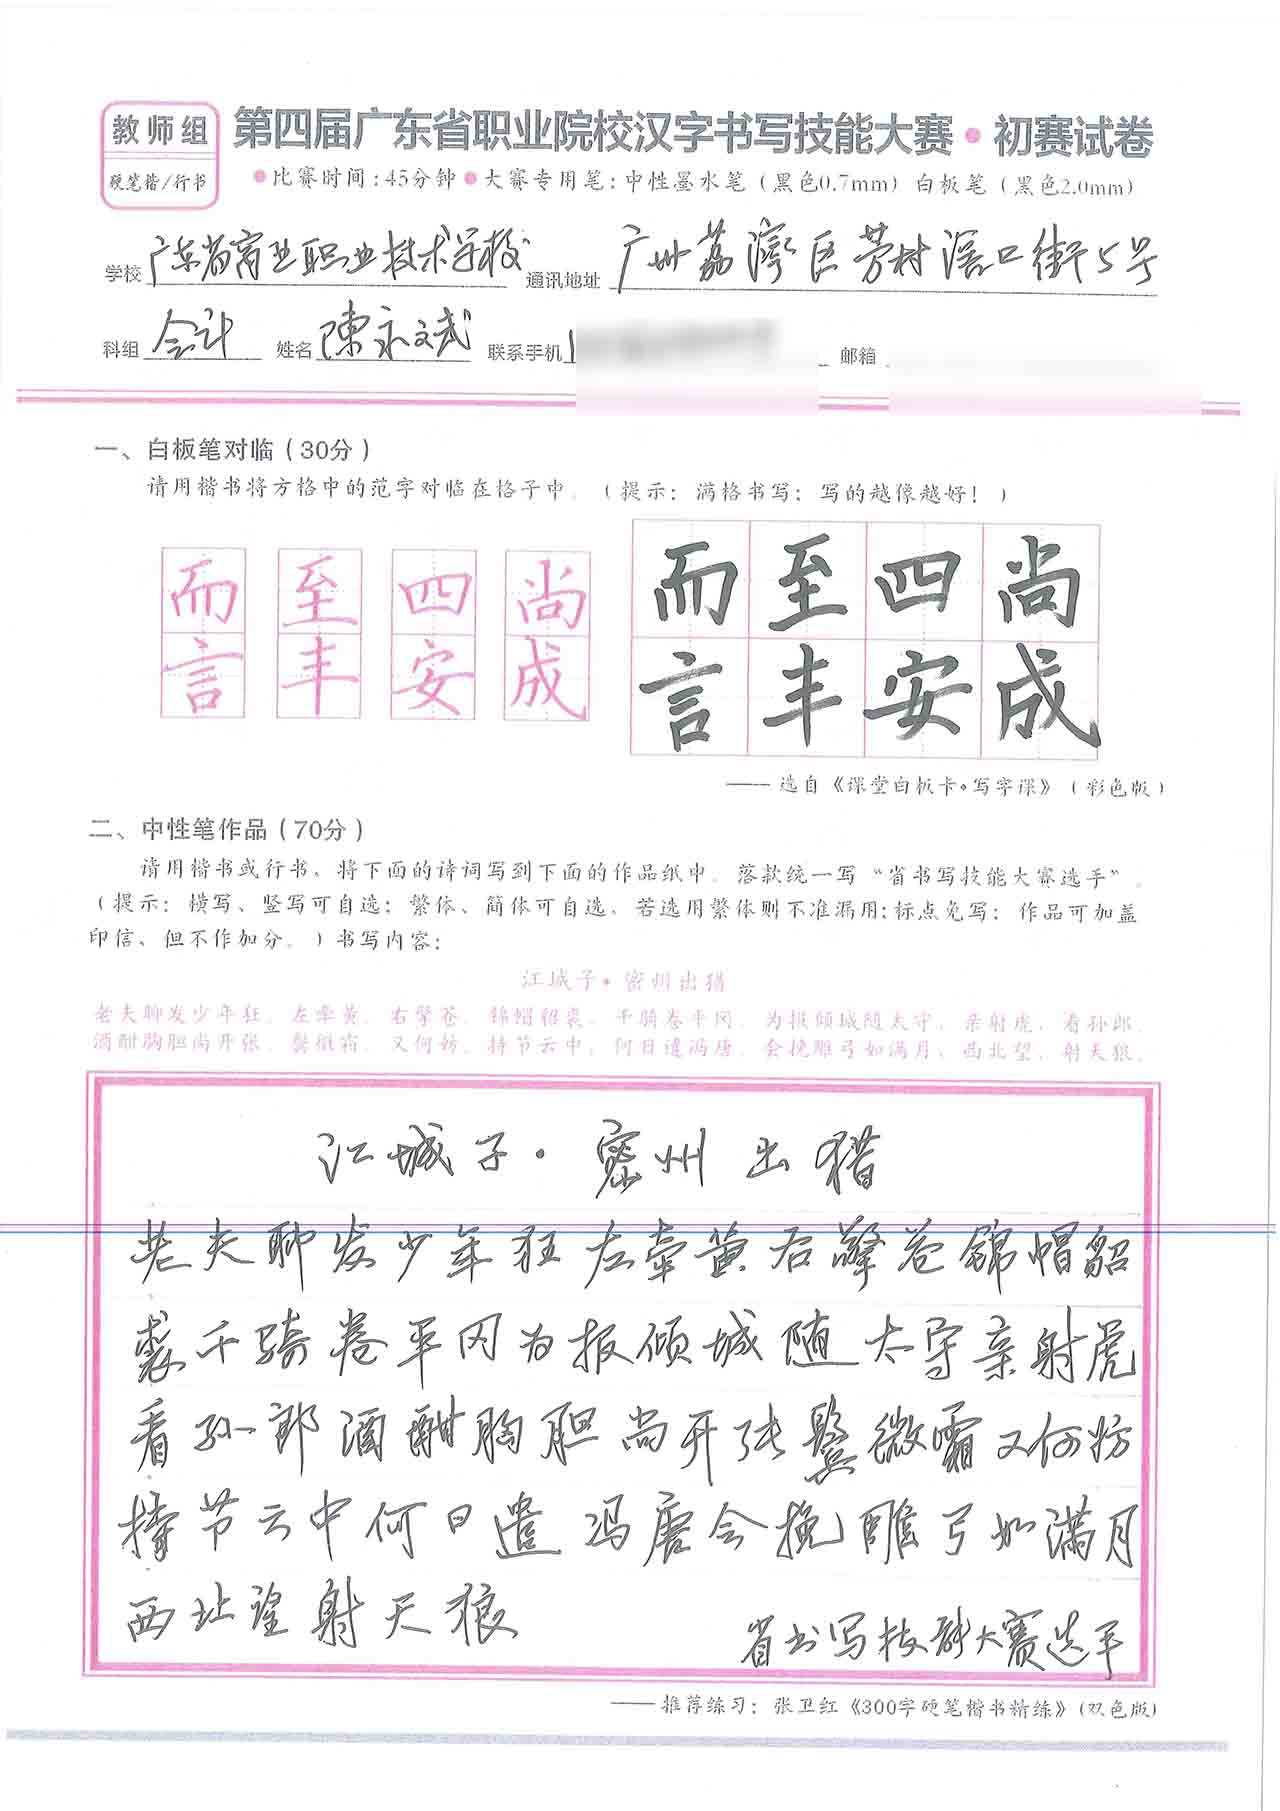 教师组
硬笔楷/行书
第四届广东省职业院校汉字书写技能大赛·初赛试卷
●比赛时间:45分钟●大赛专用笔:中性墨水笔(黑色0.7mm)白板笔(黑色2.0mm)
学校 广东省商业职业技术学校 通讯地址 广州荔湾区芳村滘口街5号
科组 会计 姓名 陳永斌 联系手机 邮箱
一、白板笔对临(30分)
请用楷书将方格中的范字对临在格子中。(提示:满格书写;写的越像越好!)
而 至 四 尚 而 至 四 尚
言 丰 安 成 言 丰 安 成
——选自《课堂白板卡·写字课》(彩色版)
二、中性笔作品(70分)
请用楷书或行书、将下面的诗词写到下面的作品纸中。落款统一写“省书写技能大赛选手”。
(提示:横写、竖写可自选;繁体、简体可自选。若选用繁体则不准漏用;标点免写;作品可加盖
印信、但不作加分。)书写内容:
江城子·密州出猎
老夫聊发少年狂。左牵黄。右擎苍。锦帽貂裘。千骑卷平冈。为报倾城随太守。亲射虎。看孙郎。
酒酣胸胆尚开张。鬓微霜。又何妨。持节云中。何日遣冯唐。会挽雕弓如满月。西北望。射天狼。
江城子·密州出猎
老夫聊发少年狂左牵黄右擎苍锦帽貂
裘千骑卷平冈为报倾城随太守亲射虎
看孙郎酒酣胸胆尚开张鬓微霜又何妨
持节云中何日遣冯唐会挽雕弓如满月
西北望射天狼
省书写技能大赛选手
——推荐练习:张卫红《300字硬笔楷书精练》(双色版)